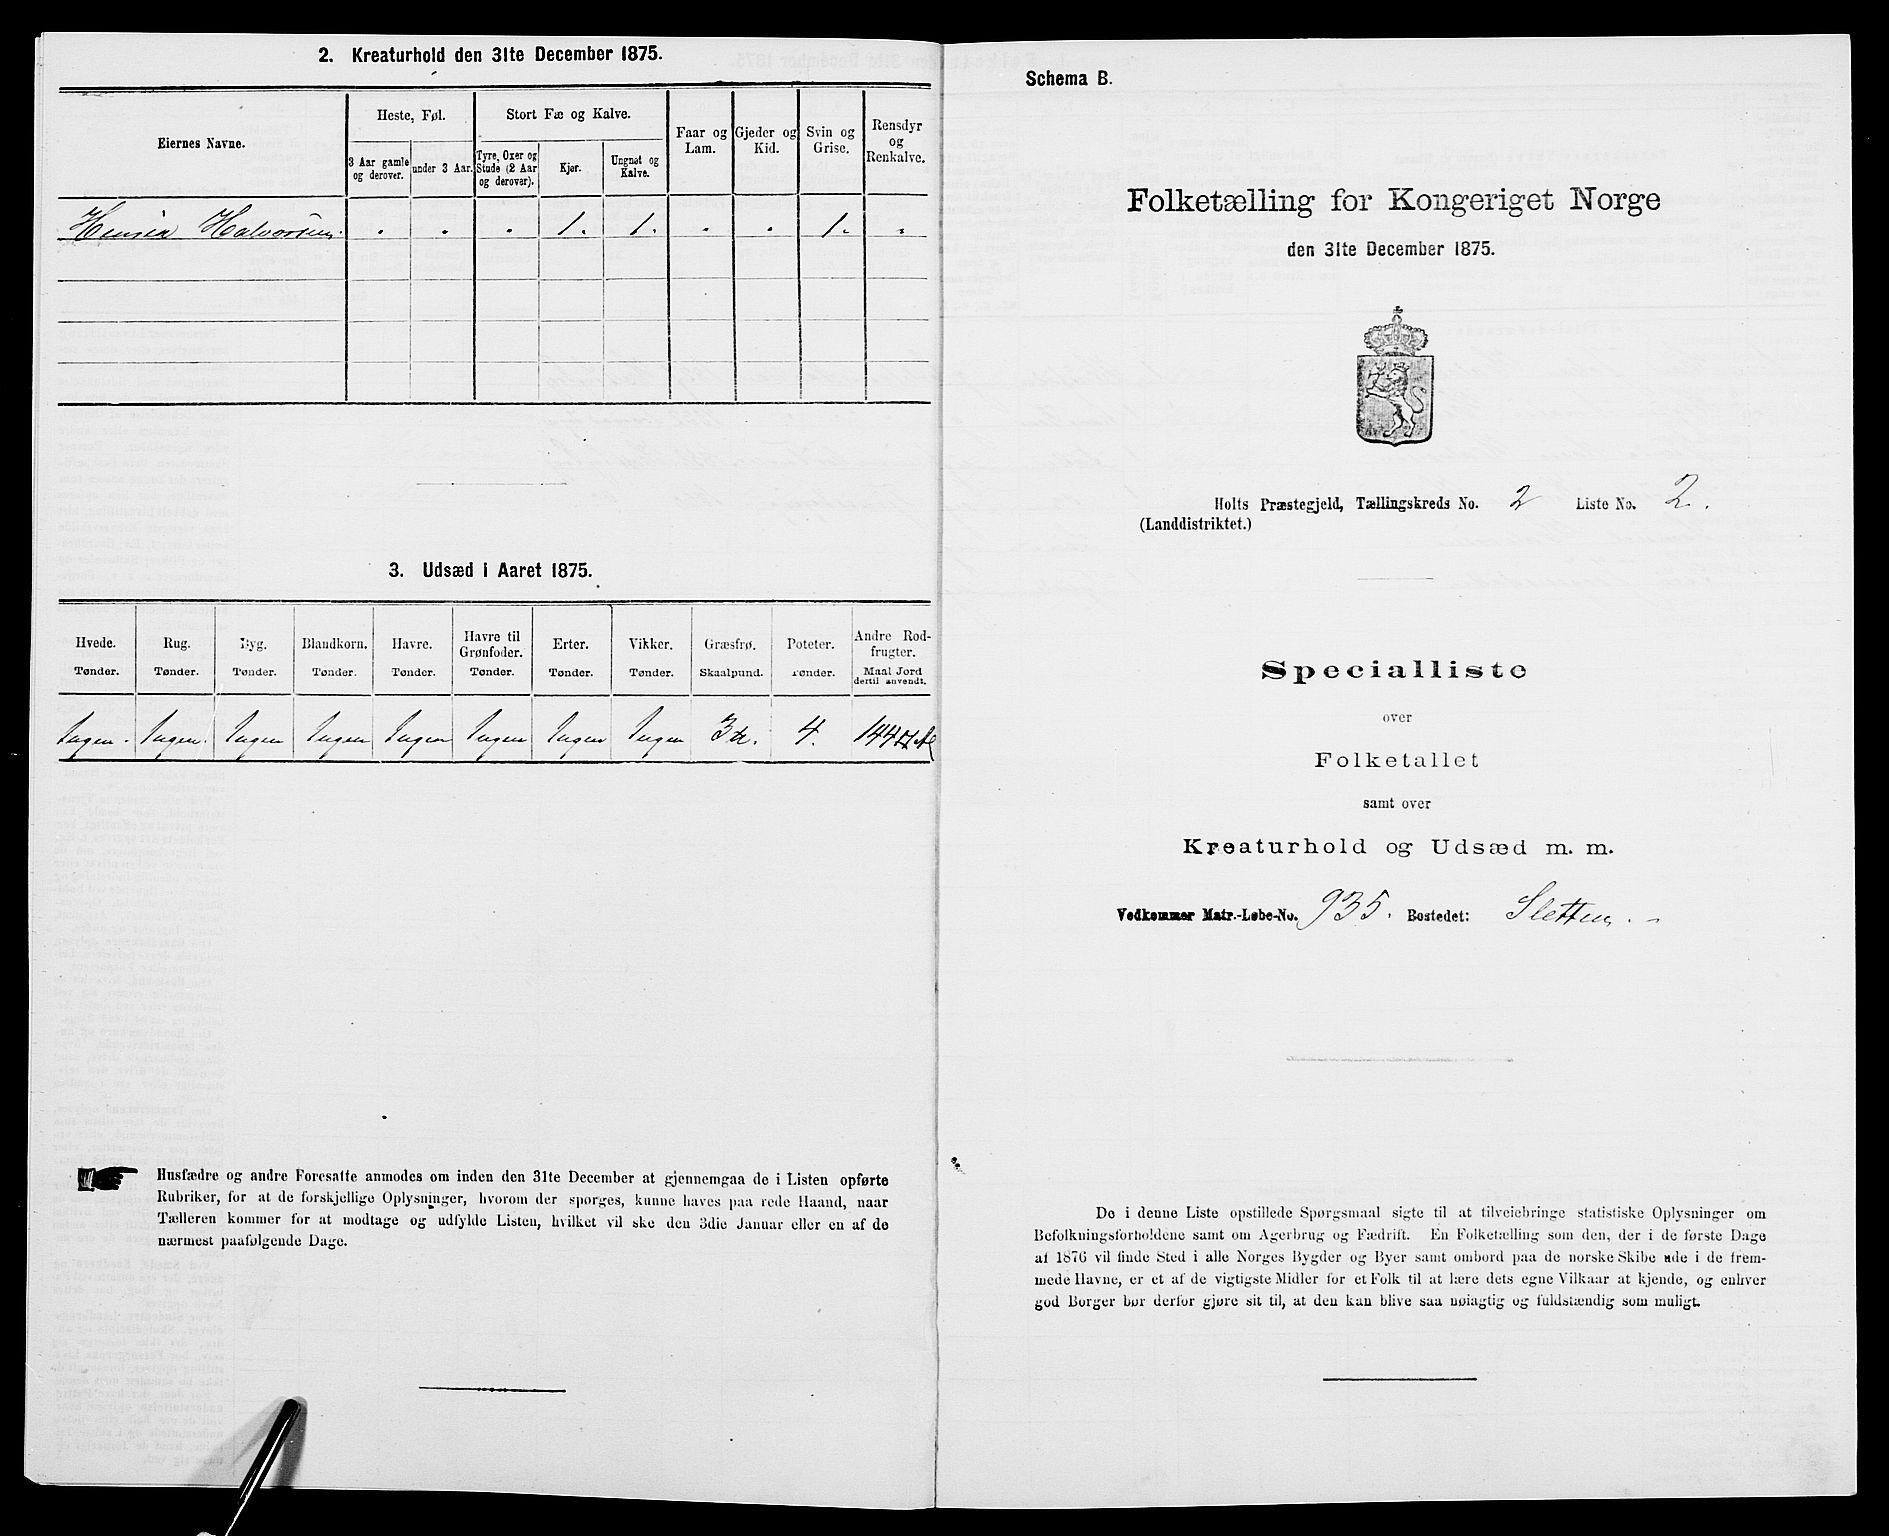 2. Kreaturhold den 31te December 1875.
Eiernes Navne.
Heste, Føl.
3 Aar gamle og derover.
under 3 Aar.
Stort Fæ og Kalve.
Tyre, Oxer og Stude (2 Aar og derover).
Kjør.
Ungnøt og Kalve.
Faar og Lam.
Gjeder og Kid.
Svin og Grise.
Rensdyr og Renkalve.
Halvorsen . . . 1. 1. . . 1. „
3. Udsæd i Aaret 1875.
Hvede. Rug. Byg. Blandkorn. Havre. Havre til Grønfoder. Erter. Vikker. Græsfrø. Poteter. Andre Rodfrugter.
Tønder. Tønder. Tønder. Tønder. Tønder. Tønder. Tønder. Tønder. Skaalpund. Tønder. Maal Jord dertil anvendt.
Ingen. Ingen. Ingen Ingen Ingen Ingen Ingen Ingen 3 4. 144
Husfædre og andre Foresatte anmodes om inden den 31te December at gjennemgaa de i Listen opførte
Rubriker, for at de forskjellige Oplysninger, hvorom der spørges, kunne haves paa rede Haand, naar
Tælleren kommer for at modtage og udfylde Listen, hvilket vil ske den 3die Januar eller en af de
nærmest paafølgende Dage.
Schema B.
Folketælling for Kongeriget Norge
den 31te December 1875.
Holts Præstegjeld, Tællingskreds No. 2 Liste No. 2.
(Landdistriktet.)
Specialliste
over
Folketallet
samt over
Kreaturhold og Udsæd m. m.
Vedkommer Matr.-Løbe-No. 935. Bostedet: Sletten.
De i denne Liste opstillede Spørgsmaal sigte til at tilveiebringe statistiske Oplysninger om
Befolkningsforholdene samt om Agerbrug og Fædrift. En Folketælling som den, der i de første Dage
af 1876 vil finde Sted i alle Norges Bygder og Byer samt ombord paa de norske Skibe ude i de frem-
mede Havne, er et af de vigtigste Midler for et Folk til at lære dets egne Vilkaar at kjende, og enhver
god Borger bør derfor gjøre sit til, at den kan blive saa nøiagtig og fuldstændig som muligt.